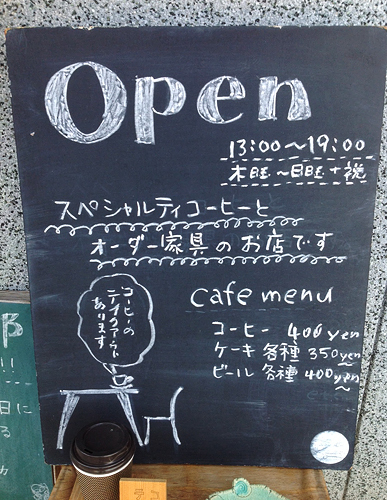 Open
13:00～19:00
木曜～日曜+祝
スペシャルティコーヒーと
オーダー家具のお店です
コーヒーの
テイクアウト
あります
cafe menu
コーヒー 400yen
ケーキ 各種 350yen～
ビール 各種 400yen～
!!
日に
る